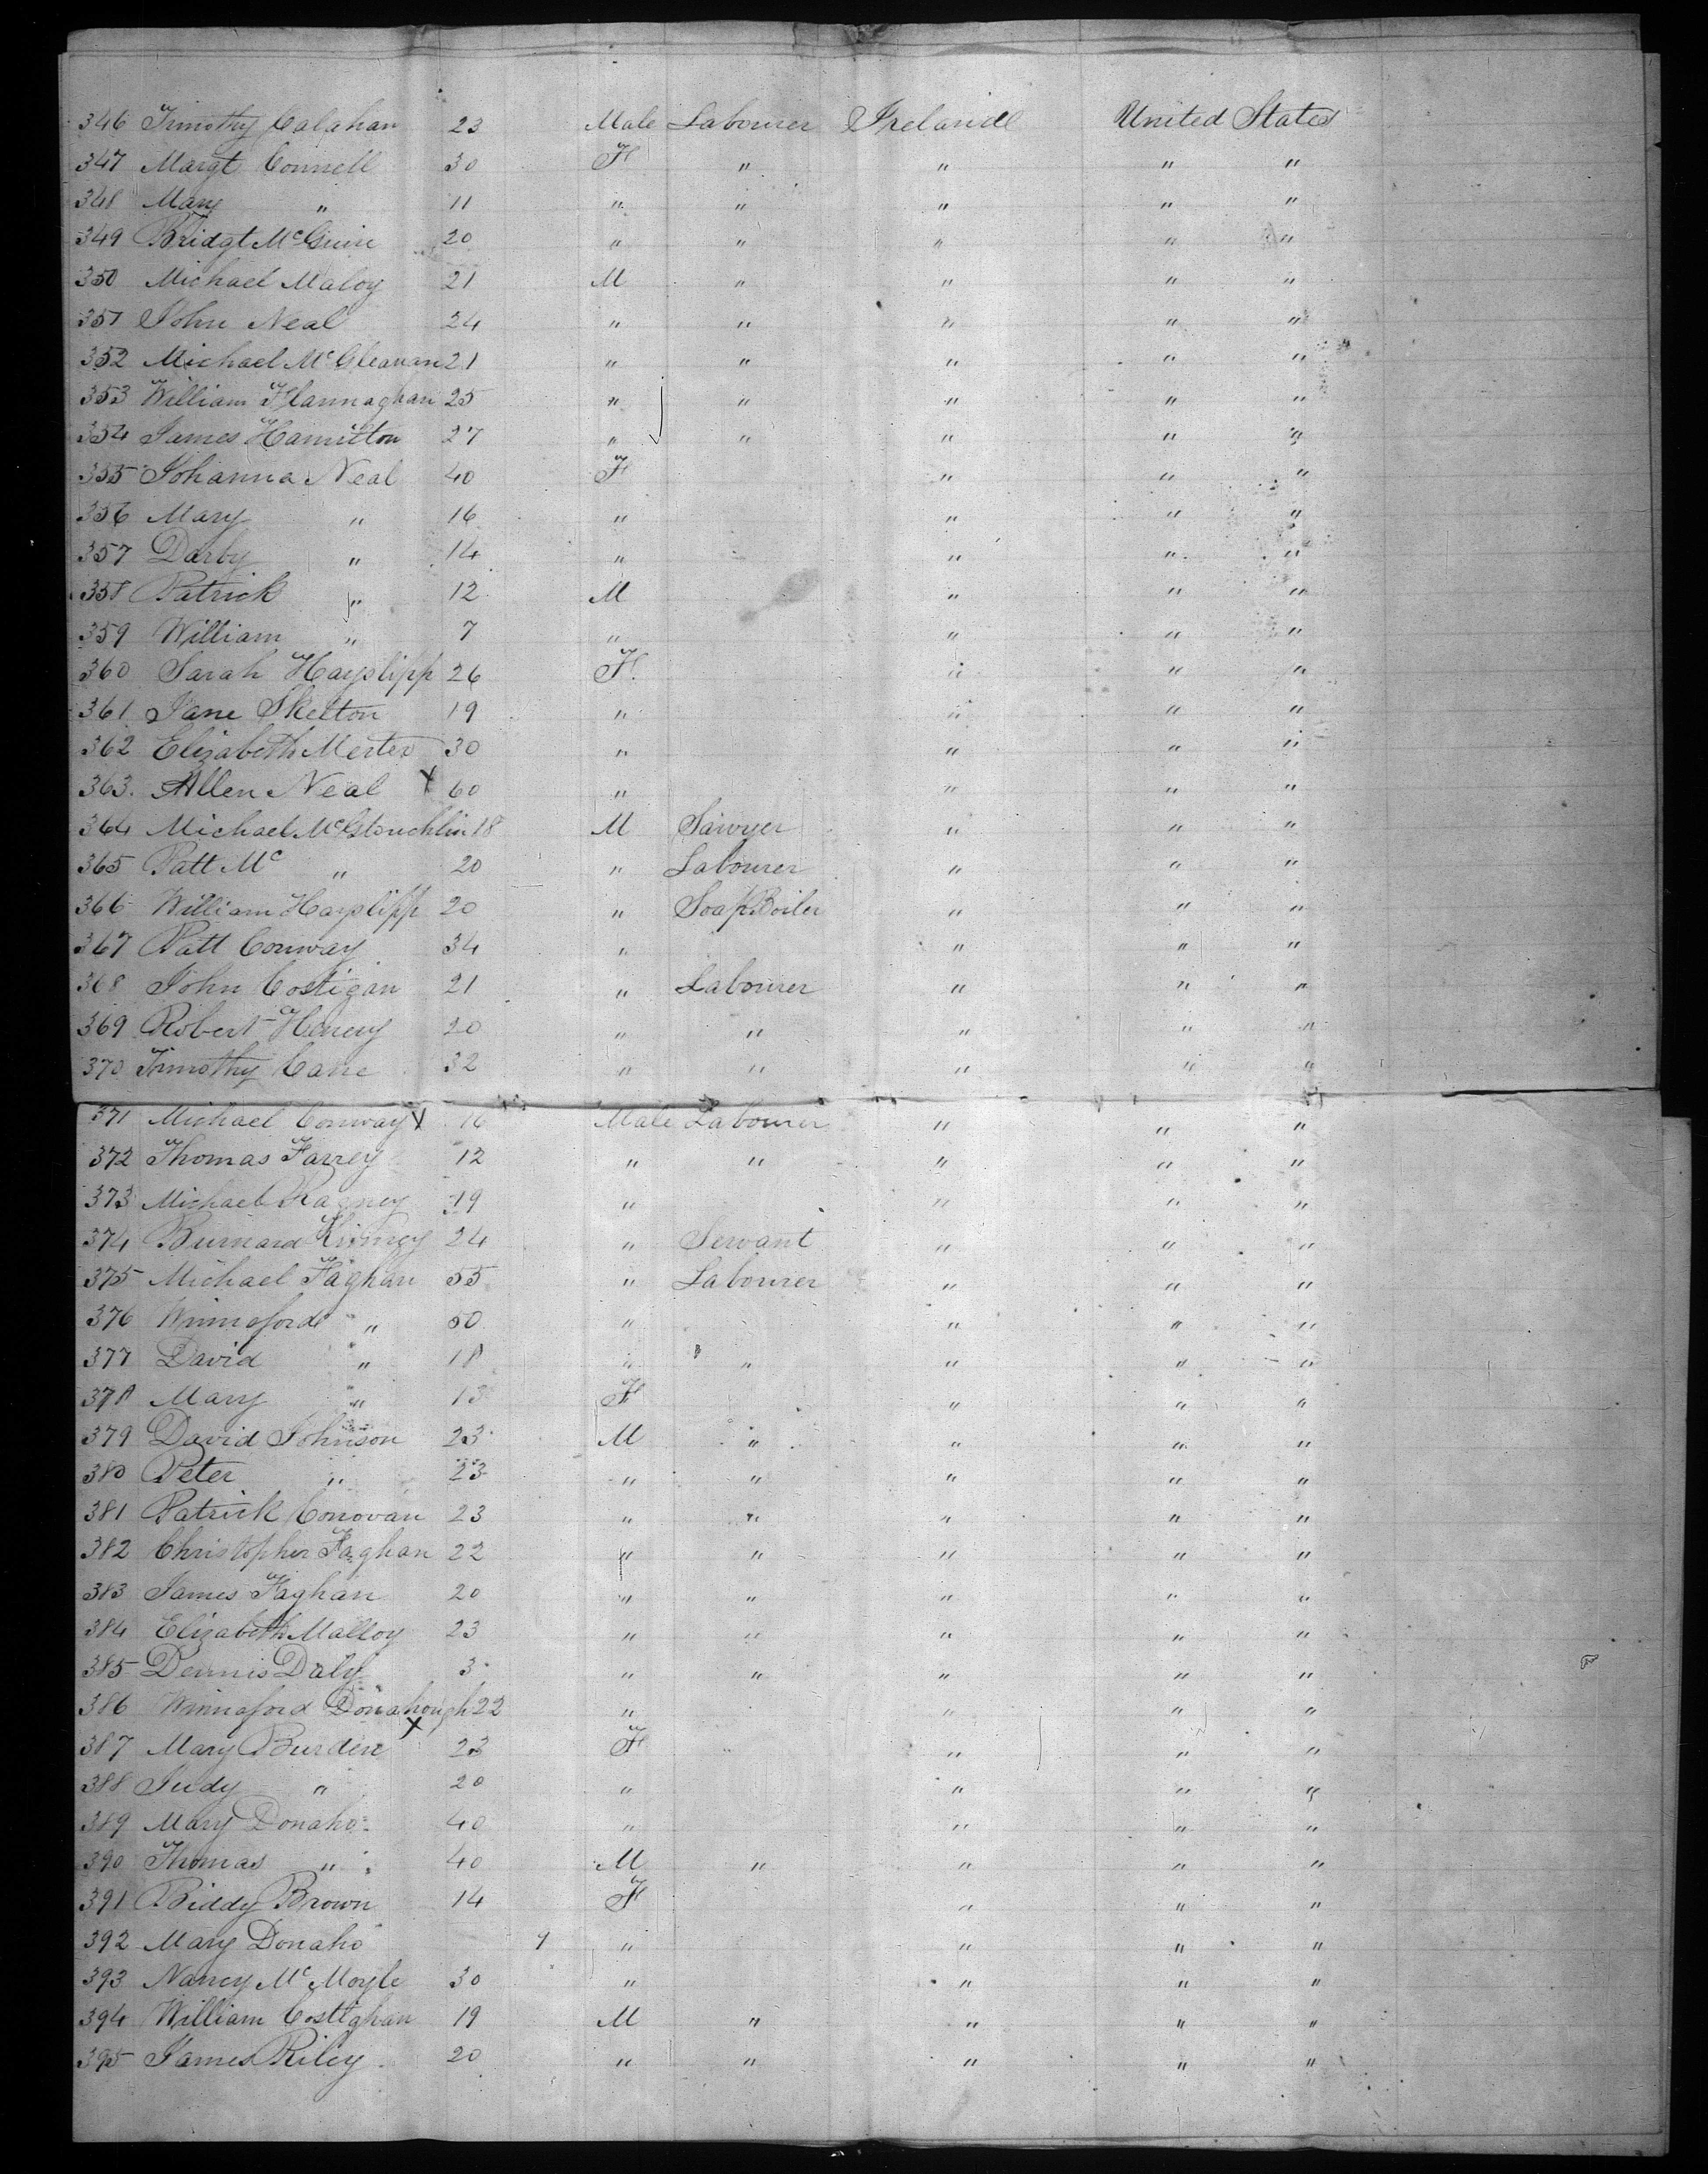 346 Timothy Calahan 23 Male Labourer Ireland United States
347 Margt Connell 30 F " " " "
348 Mary " 11 " " " " "
349 Bridgt McGuin 20 " " " " "
350 Michael Maloy 21 M " " " "
351 John Neal 24 " " " " "
352 Michael McGleanan 21 " " " " "
353 William Flannaghan 25 " " " " "
354 James Hamilton 27 " " " " "
355 Johanna Neal 40 F " " "
356 Mary " 16 " " " "
357 Darby " 14 " " " "
358 Patrick " 12 M " " "
359 William " 7 " " " "
360 Sarah Hayslipp 26 F " " "
361 Jane Skelton 19 " " " "
362 Elizabeth Mester 30 " " " "
363. Allen Neal X 60 " " " "
364 Michael 18 M Sawyer " " "
365 Patt Mc " 20 " Labourer " " "
366 William Hayslipp 20 " Soap Boiler " " "
367 Patt Conway 34 " " " "
368 John Costigan 21 " Labourer " " "
369 Robert Henery 20 " " " " "
370 Timothy Cane 32 " " " " "
371 Michael Conway X 16 Male Labourer " " "
372 Thomas Farrey 12 " " " " "
373 Michael Ragney 19 " " " "
374 Burnard Kinney 24 " Servant " " "
375 Michael Faghan 55 " Labourer " " "
376 Winneford " 50 " " " "
377 David " 18 " " " " "
378 Mary " 13 F " " "
379 David Johnson 23 M " " " "
380 Peter " 23 " " " " "
381 Patrick Conovan 23 " " " " "
382 Christopher Faghan 22 " " " " "
383 James Faghan 20 " " " " "
384 Elizabeth Malloy 23 " " " " "
385 Dennis Daly 3 " " " " "
386 Winneford Donahough 22 " " " "
X
387 Mary Burden 23 F " " "
388 Judy " 20 " " " "
389 Mary Donaho 40 " " " "
390 Thomas " 40 M " " " "
391 Biddy Brown 14 F " " "
392 Mary Donaho 9 " " " "
393 Nancy McMoyle 30 " " " "
394 William Costighan 19 M " " " "
395 James Riley 20 " " " " "